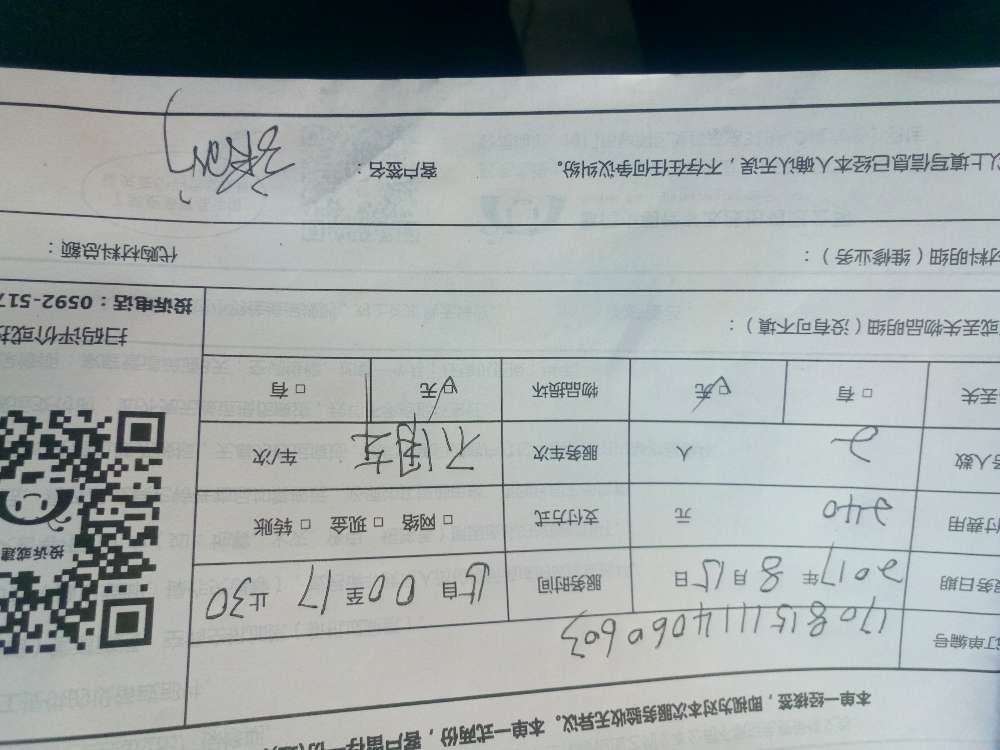 本单一经核签，即视为对本次服务验收无异议。本单一式两份，客户留存一份
订单编号 170815111406060603
服务日期 2017年8月15日 服务时间 自15 00至17 止30
付费用 240 元 支付方式 □网络 □现金 □转账
务人数 2 人 服务车次 车/次
丢失 □有 □无 物品损坏 □无 □有
或丢失物品明细（没有可不填）：
材料明细（维修业务）： 代购材料总额：
以上填写信息已经本人确认无误，不存在任何争议纠纷。 客户签名：
投诉或建
扫码评价或投
投诉电话：0592-517